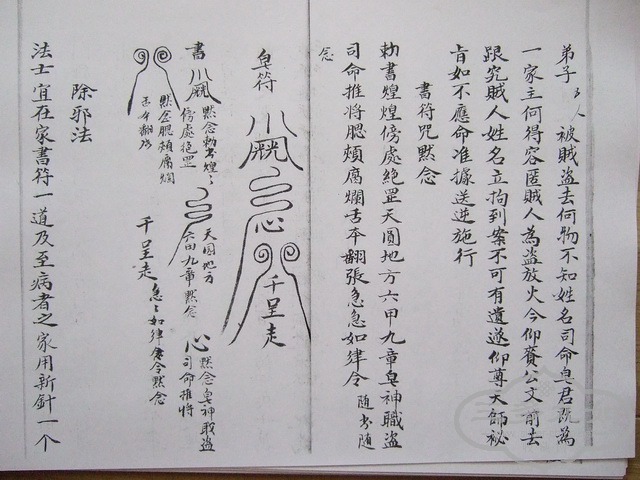 弟子 厶人 被賊盗去何物不知姓名司命皂君既為
一家主何得容匿賊人為盗放火今仰賫公文前去
跟究賊人姓名立拘到案不可有違遂仰尊天師祕
旨如不應命准據送逆施行
書符咒默念
勅書煌煌傍處絶罡天圓地方六甲九章皂神職盗
司命推将腮頰腐爛舌本翻張急急如律令 随书随
念
皂符
心
千呈走
書
默念勅書煌々
傍處绝罡
天圓地方
六甲九章默念
心
默念皂神戢盗
司命推将
默念腮頰腐爛
舌本翻張
千呈走
急々如律令默念
除邪法
法士宜在家書符一道及至病者之家用新針一个